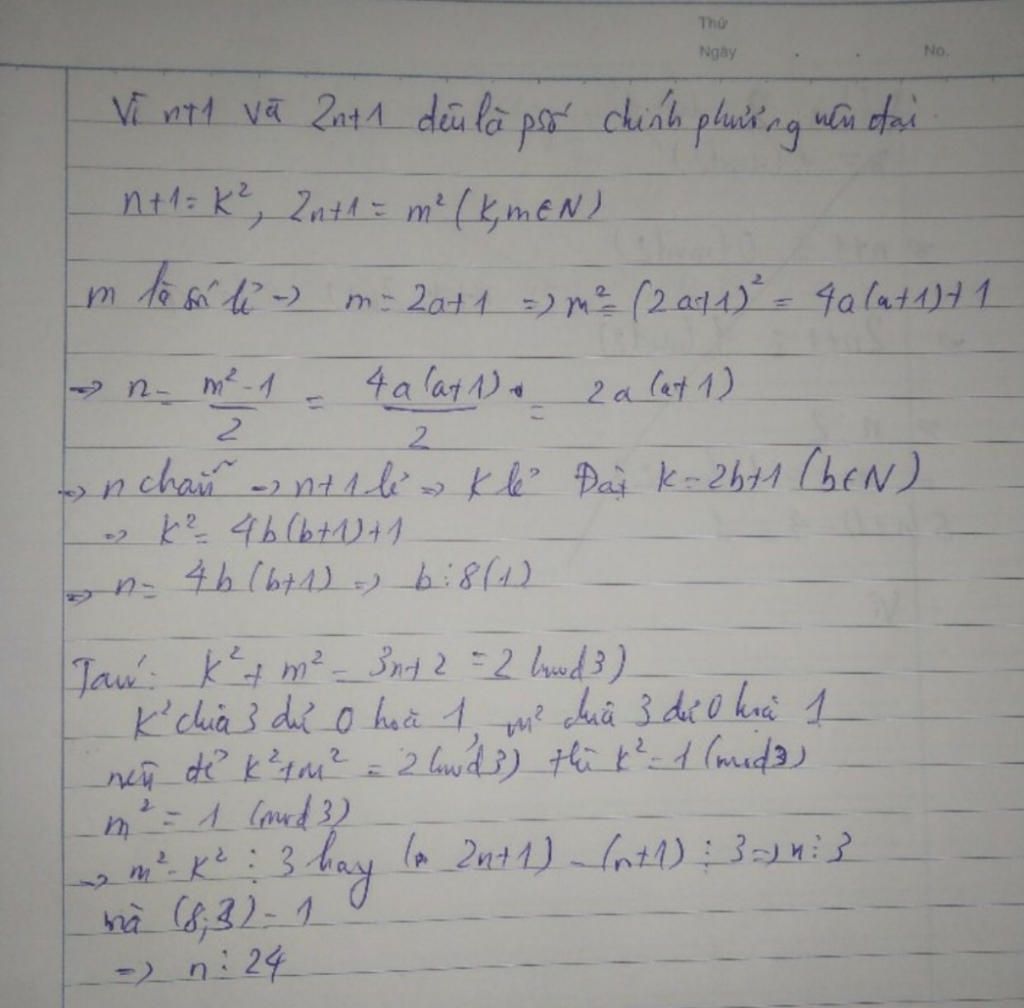 Thứ
Ngày . . No.
Vì n+1 và 2n+1 đều là psố chính phương nên đặt
n+1 = k², 2n+1 = m² (k,m ∈ N)
m là số lẻ → m = 2a+1 => m² = (2a+1)² = 4a(a+1)+1
=> n = (m²-1)/2 = 4a(a+1)/2 = 2a(a+1)
=> n chẵn => n+1 lẻ => k lẻ Đặt k = 2b+1 (b∈N)
=> k² = 4b(b+1)+1
=> n = 4b(b+1) => b⋮8(1)
Ta có: k² + m² = 3n+2 = 2 (mod 3)
k² chia 3 dư 0 hoặc 1, m² chia 3 dư 0 hoặc 1
nên để k²+m² = 2 (mod 3) thì k² = 1 (mod 3)
m² = 1 (mod 3)
=> m² - k² ⋮ 3 hay (2n+1) - (n+1) ⋮ 3 => n⋮3
mà (8;3) = 1
=> n⋮24